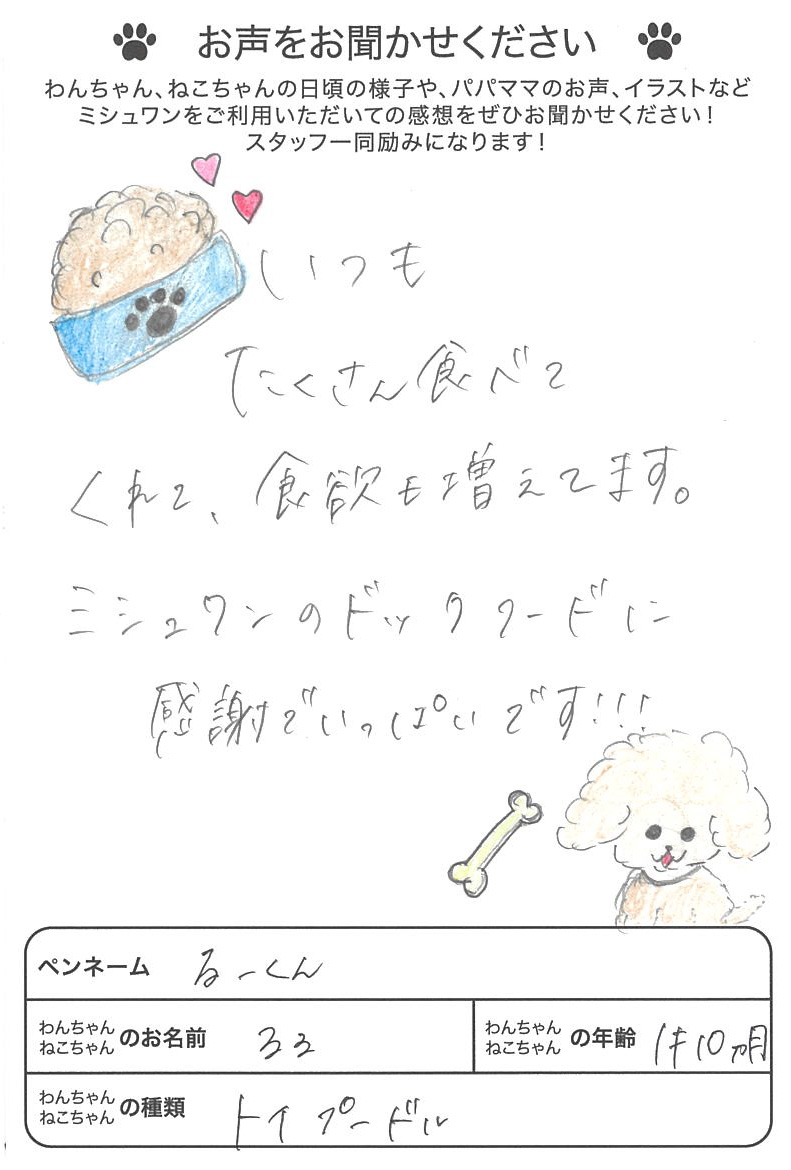 お声をお聞かせください
わんちゃん、ねこちゃんの日頃の様子や、パパママのお声、イラストなど
ミシュワンをご利用いただいての感想をぜひお聞かせください！
スタッフ一同励みになります！
いつも
たくさん食べて
くれて、食欲も増えてます。
ミシュワンのドックフードに
感謝でいっぱいです!!!
ペンネーム るーくん
わんちゃん
ねこちゃん のお名前 るる
わんちゃん
ねこちゃん の年齢 1才10ヵ月
わんちゃん
ねこちゃん の種類 トイプードル